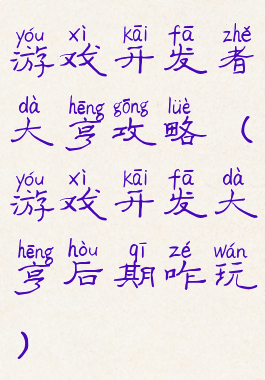 yóu xì kāi fā zhě
游戏开发者
dà hēng gōng lüè
大亨攻略（
yóu xì kāi fā dà
游戏开发大
hēng hòu qī zé wán
亨后期咋玩
）